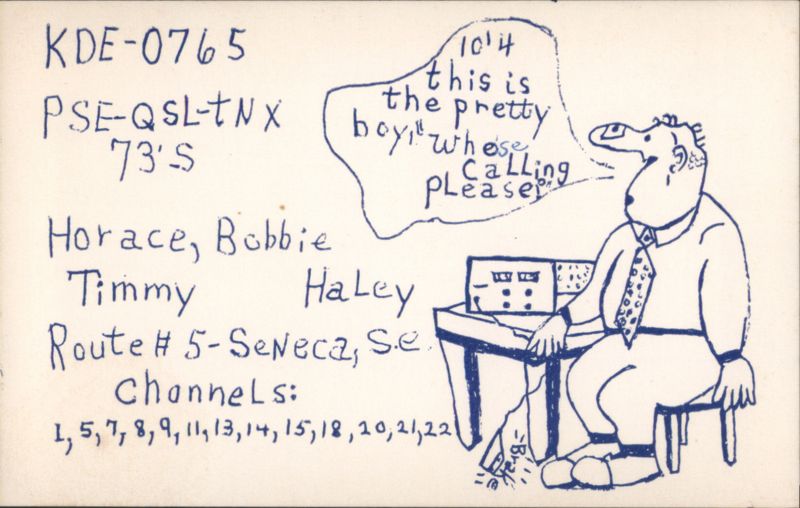 KDE-0765
PSE-QSL-TNX
73'S
10'4
this is
the pretty
boy," Whose
CaLLing
PLease?"
Horace, Bobbie
Timmy Haley
Route # 5-Seneca, S.C.
Channels:
1, 5, 7, 8, 9, 11, 13, 14, 15, 18, 20, 21, 22